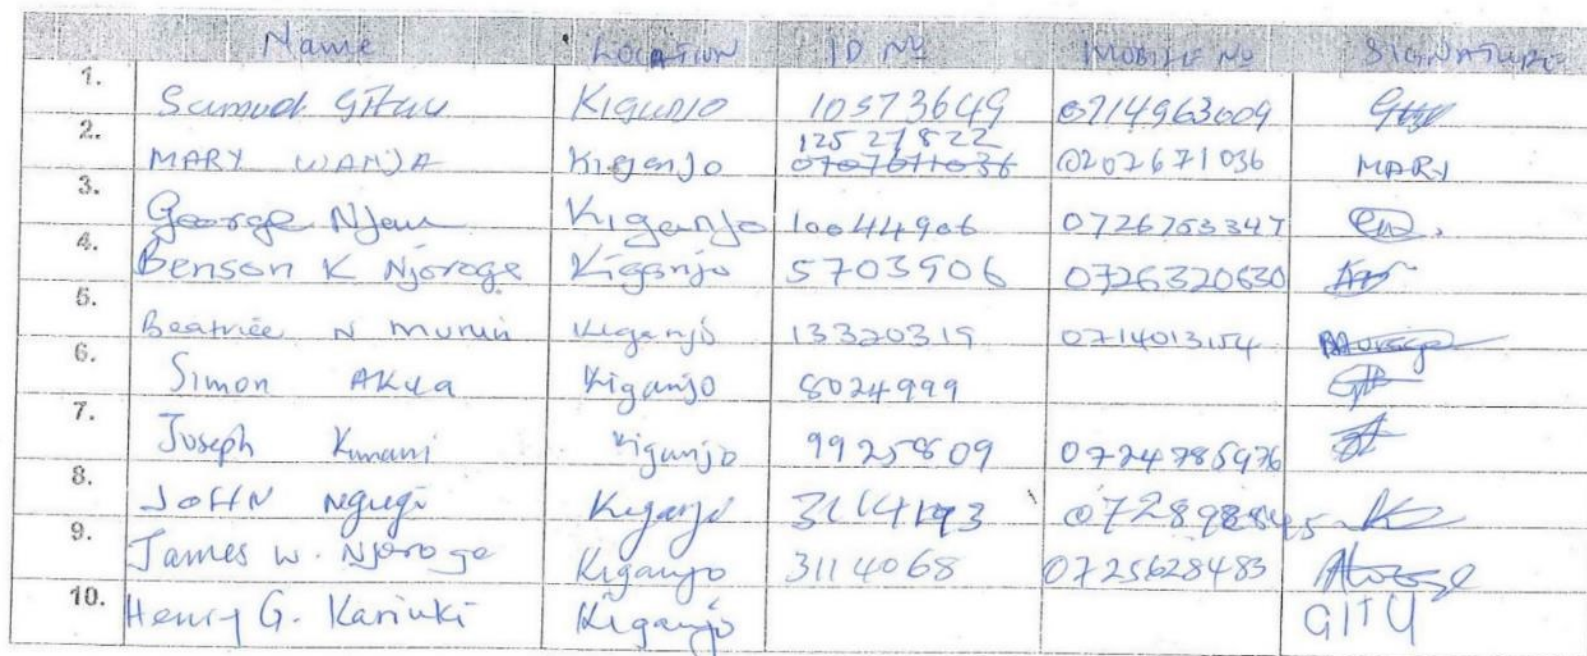 Name LOCATION ID No MOBILE No SIGNATURE
1. Samuel Gitau Kiganjo 10573649 0714963009
2. MARY WANJA Kiganjo 12527822 0707671036 0202671036 MARY
3. George Njau Kiganjo 10044906 0726753347
4. Benson K Njoroge Kiganjo 5703906 0726320630
5. Beatrice N Kiganjo 13320319 0714013154
6. Simon Kiganjo 8024999
7. Joseph Kimani Kiganjo 9925809 0724785976
8. JOHN Ngugi Kiganjo
9. James W. Njoroge Kiganjo 3114068 0725628483
10. Henry G. Kariuki Kiganjo GITU